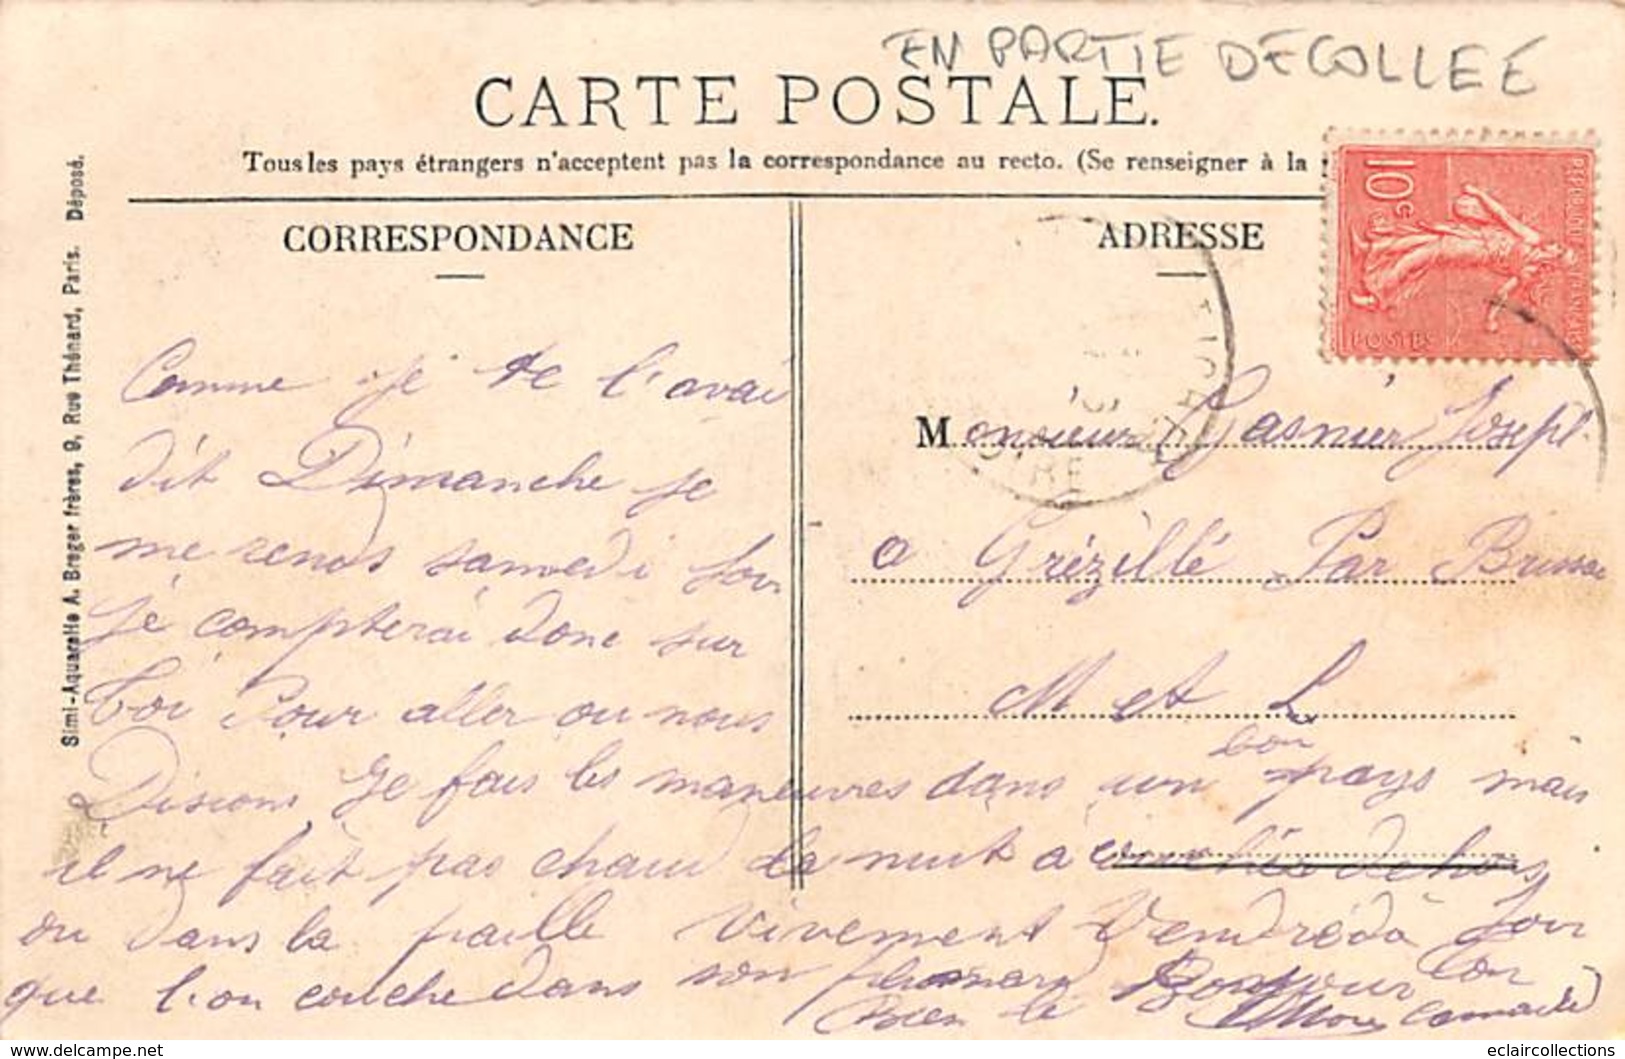 EN PARTIE DECOLLEE
CARTE POSTALE.
Tous les pays étrangers n'acceptent pas la correspondance au recto. (Se renseigner à la
CORRESPONDANCE
ADRESSE
Simi-Aquarelle A. Breger frères, 9, Rue Thénard, Paris. Déposé.
10c
POSTES
Comme je te l'avai
dit Dimanche je
me rends samedi soir
je compterai donc sur
toi Pour aller ou nous
Disions Je fais les maneuvres dans un bon pays mais
il ne fait pas chaud la nuit a couchés dehors
ou dans la paille vivement Vendrédà soir
que l'on couche dans son
Bien le Bonjour ton
Camarde
Monsieur Gasnier Joseph
a Grézillé Par Brissac
M et L
OIRE
eclaircollections